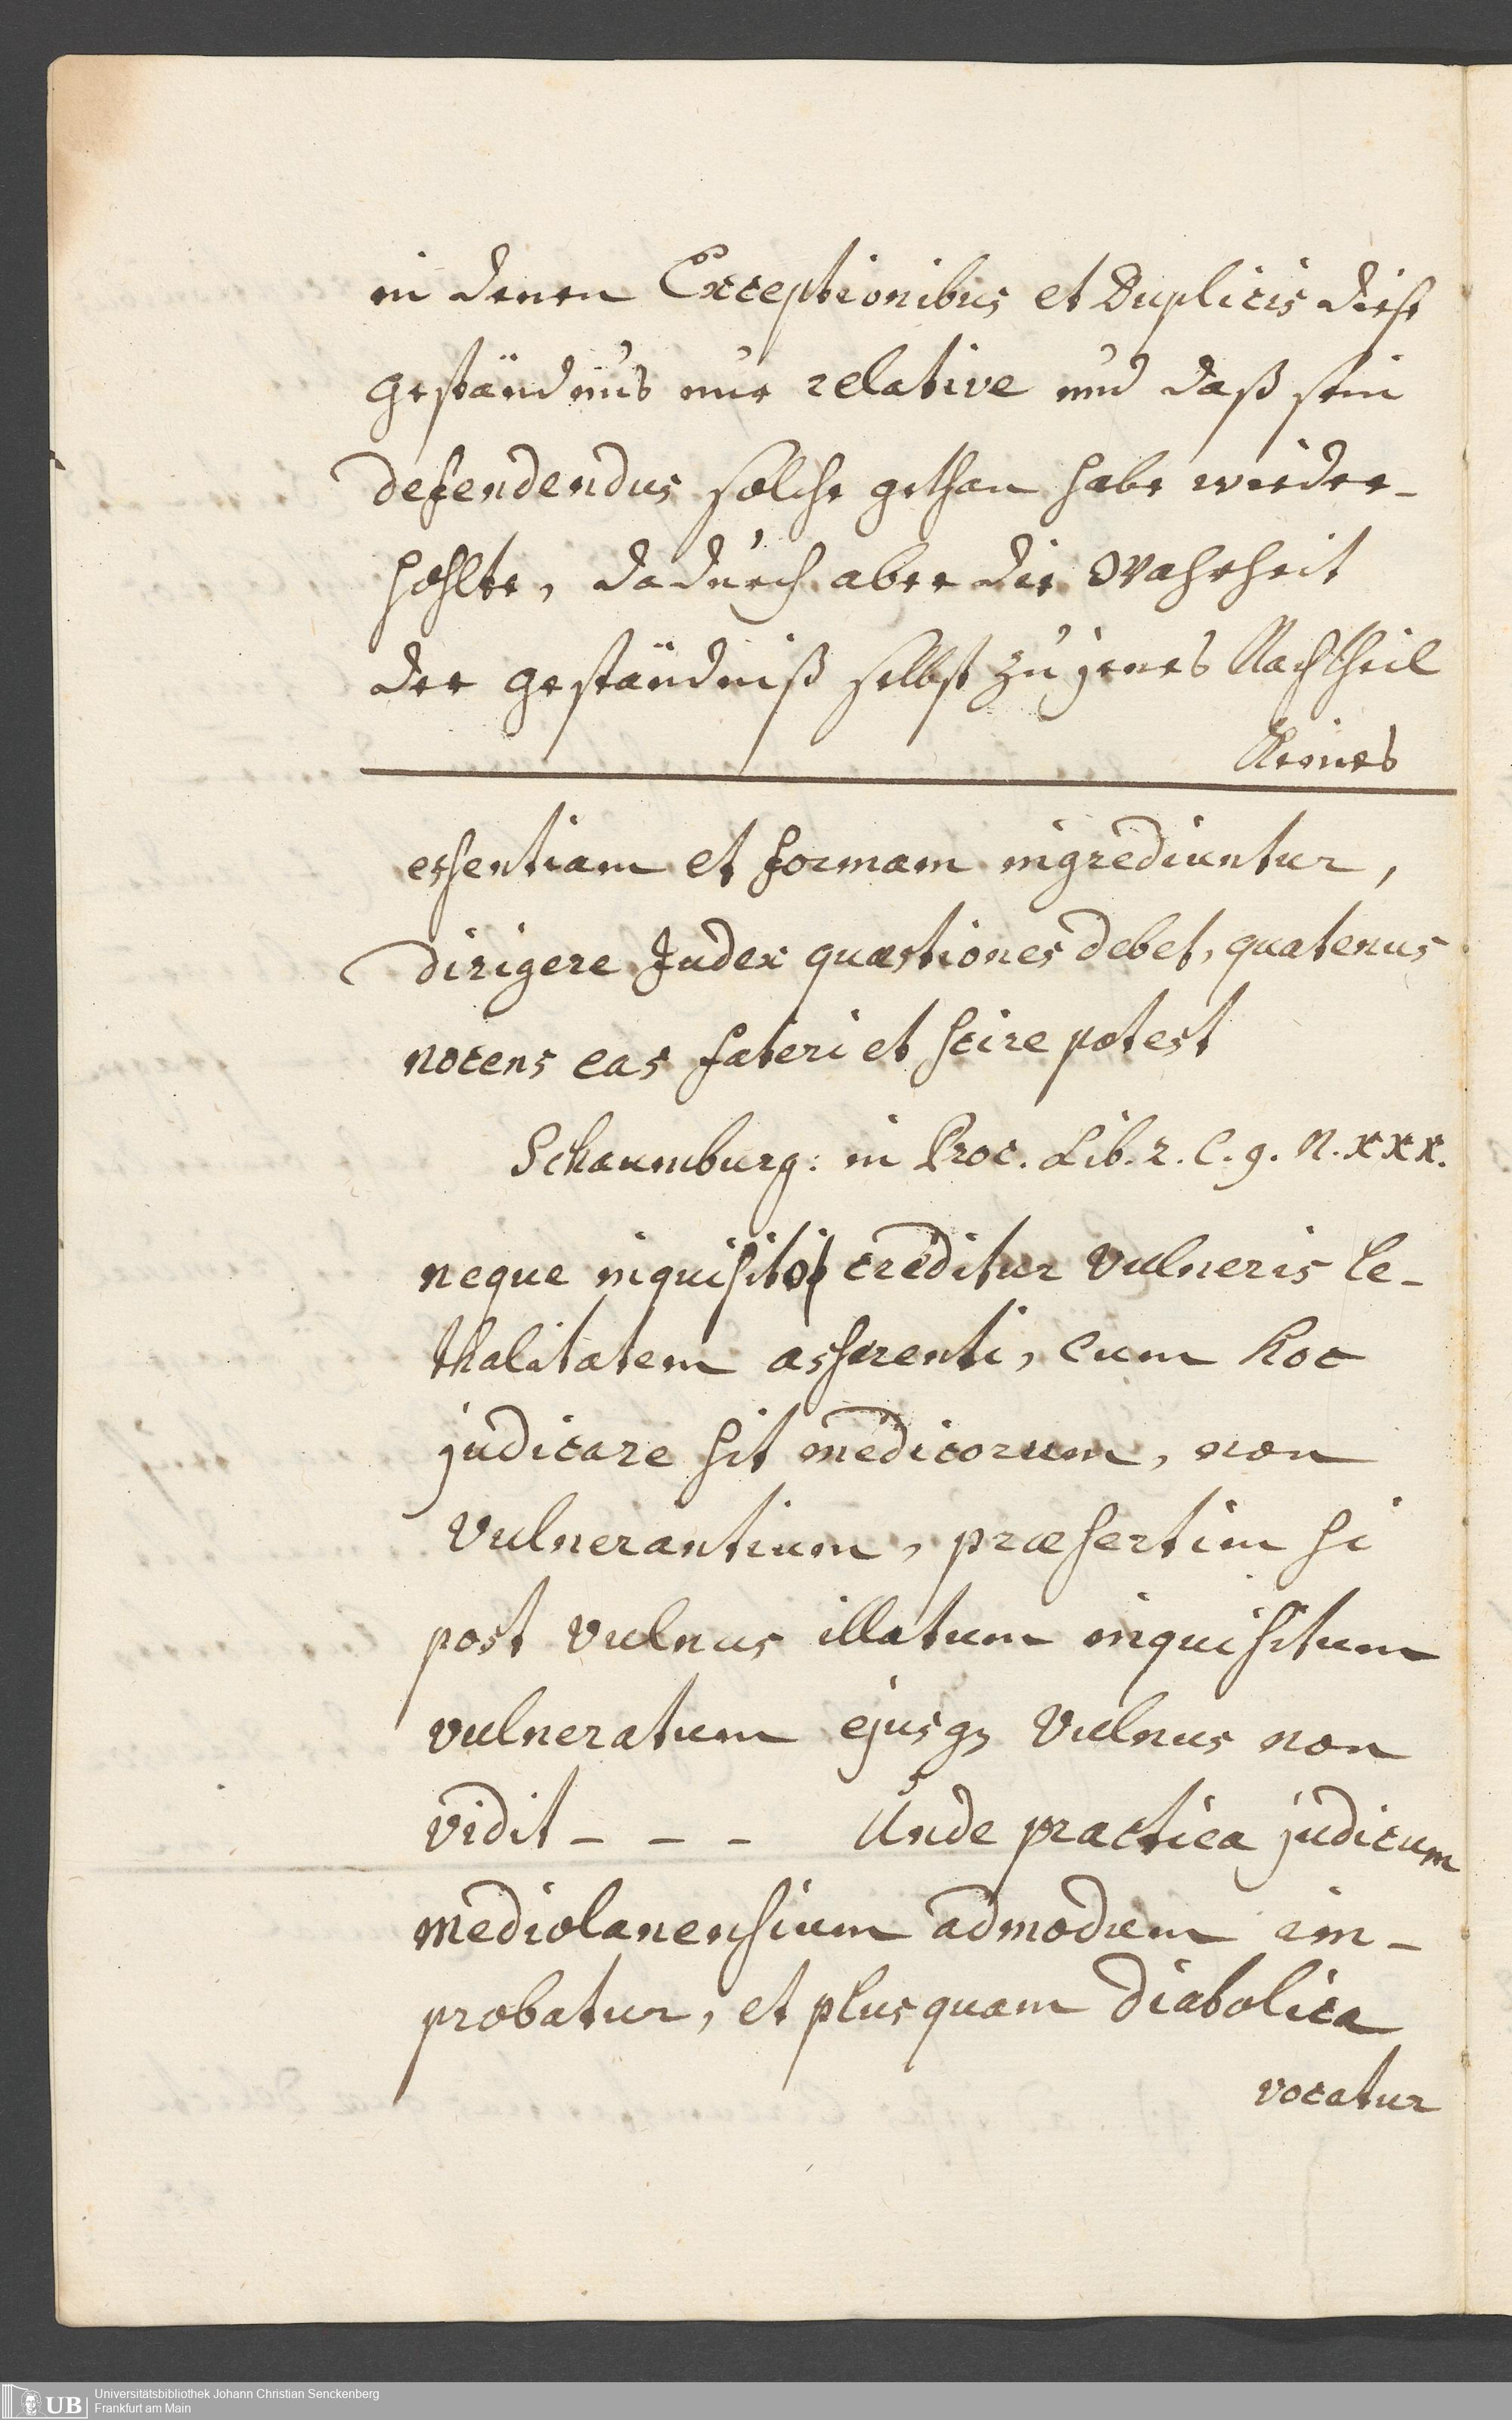 in denen Exceptionibus et Duplicis diese
geständnus nur relative und daß sein
defendendus solche gethan habe wieder-
hohlte, dadurch aber die Wahrheit
der geständniß selbst zu jenes Nachtheil
Keines
essentiam et formam ingrediuntur,
dirigere Judex quæstiones debet, quatenus
nocens eas fateri et scire potest
Schaumburg: in Proc. Lib. 2. C. 9. N. XXX.
neque inquisito creditur vulneris le-
thalitatem asserenti, cum hoc
judicare sit medicorum, non
vulnerantium, præsertim si
post vulnus illatum inquisitum
vulneratum ejusq3 vulnus non
vidit - - - Unde practica judicum
Mediolanensium admodum im-
probatur, et plusquam diabolica
vocatur
UB Universitätsbibliothek Johann Christian Senckenberg
Frankfurt am Main